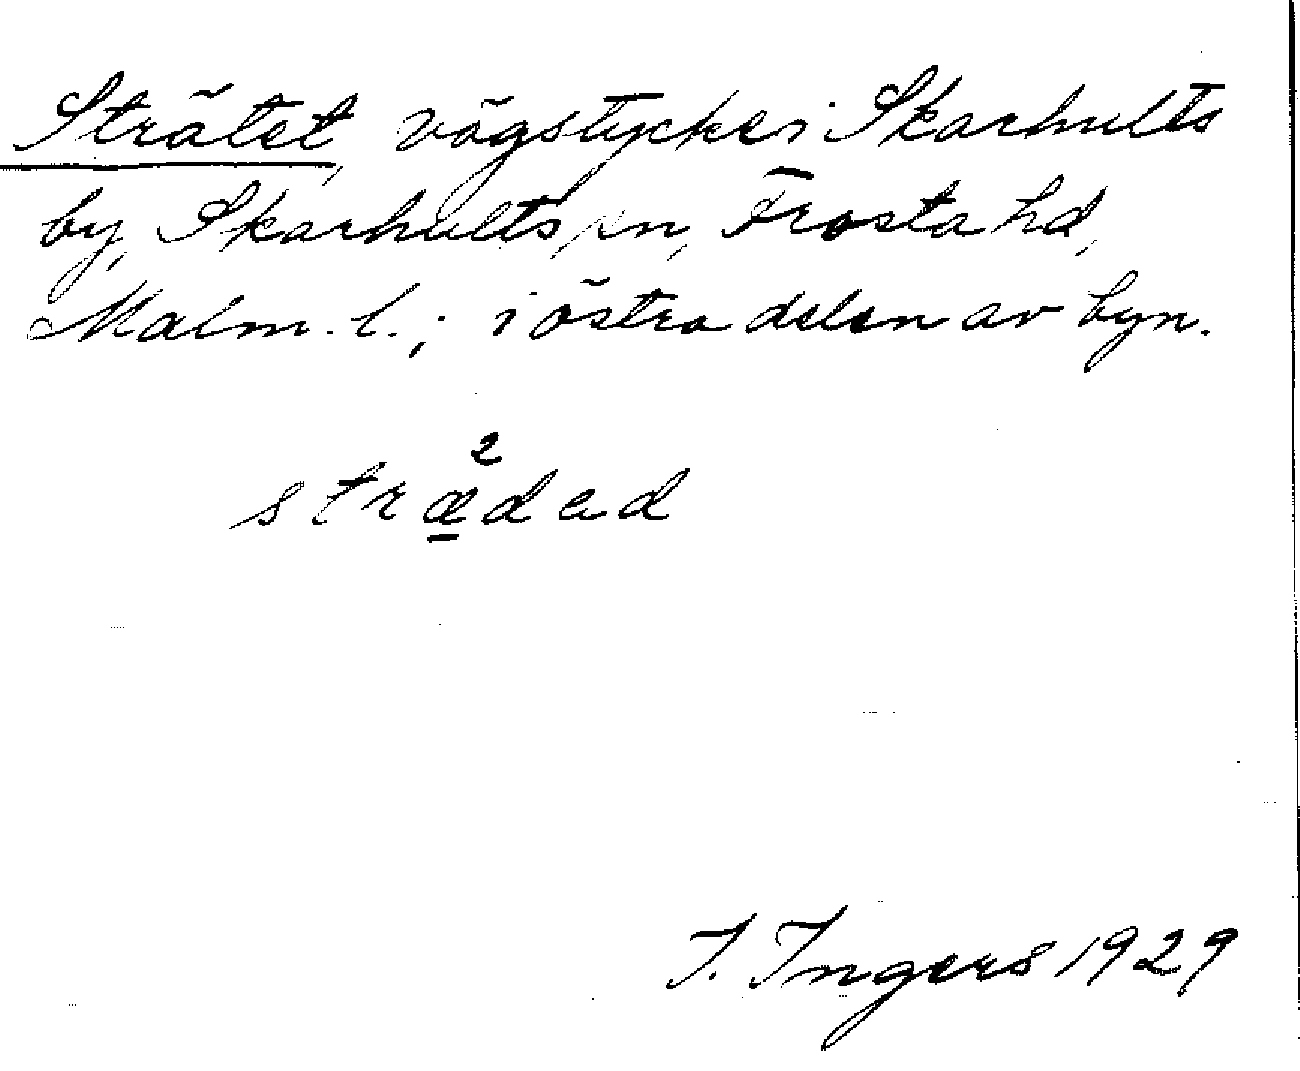 Strätet, vägstycke i Skarhults
by, Skarhults sn, Frosta hd,
Malm. l.; i östra delen av byn.
2
stræ̱dad
I. Ingers 1929